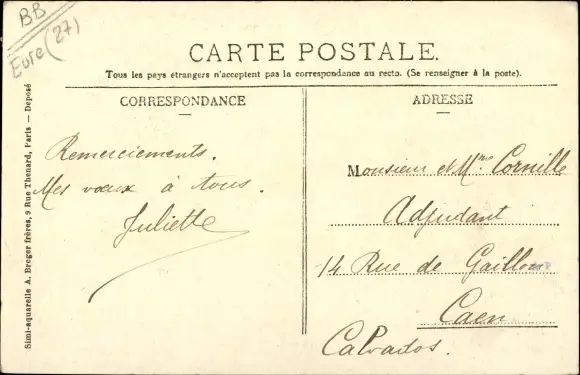 BB
Eure (27)
CARTE POSTALE.
Tous les pays étrangers n'acceptent pas la correspondance au recto. (Se renseigner à la poste).
CORRESPONDANCE
Remerciements.
Mes vœux à tous.
Juliette
ADRESSE
Monsieur et Mme Cornille
Adjudant
14 Rue de Gaillon
Caen
Calvados.
Simi-aquarelle A. Breger frères, 9 Rue Thenard, Paris — Déposé